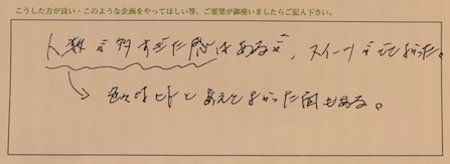 こうした方が良い・このような企画をやってほしい等、ご要望が御座いましたらご記入下さい。
人数が多すぎた感はあるが、スイーツがでてよかった。
→色々なヒトと会えてよかった面もある。